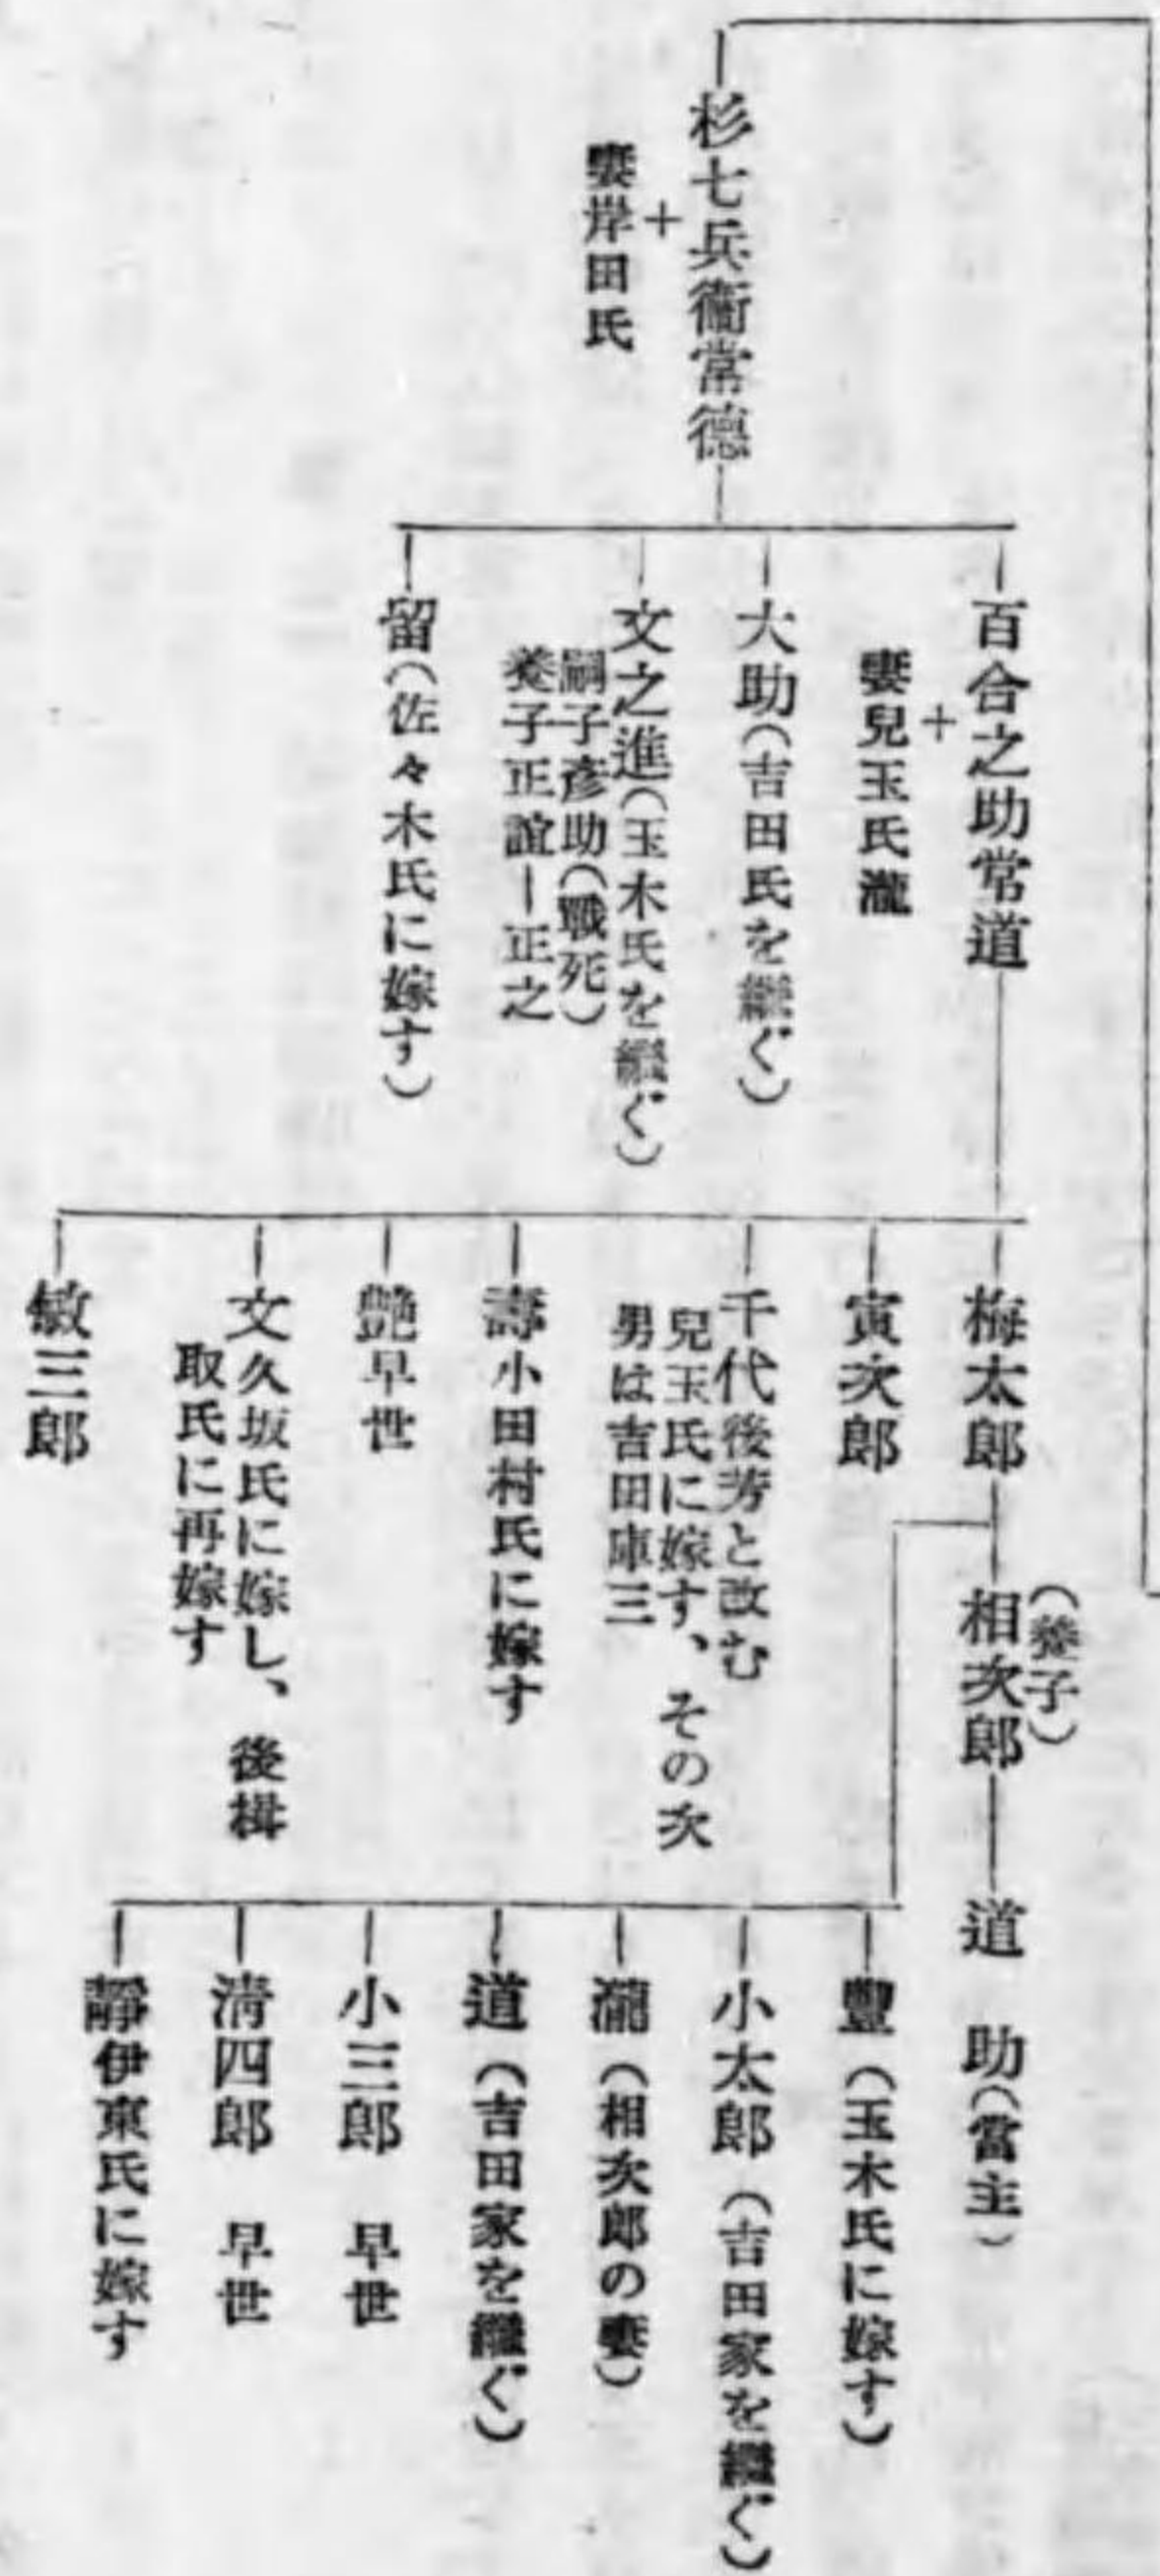 杉七兵衞常德
＋
妻岸田氏
百合之助常道
＋
妻兒玉氏瀧
大助(吉田氏を繼ぐ)
文之進(玉木氏を繼ぐ)
嗣子彥助(戰死)
養子正誼ー正之
留(佐々木氏に嫁す)
梅太郎
寅次郎
千代後芳と改む
兒玉氏に嫁す、その次
男は吉田庫三
壽小田村氏に嫁す
艶早世
文久坂氏に嫁し、後楫
取氏に再嫁す
敏三郎
(養子)
相次郎
道助(當主)
豐(玉木氏に嫁す)
小太郎(吉田家を繼ぐ)
瀧(相次郎の妻)
道(吉田家を繼ぐ)
小三郎 早世
淸四郎 早世
靜伊東氏に嫁す